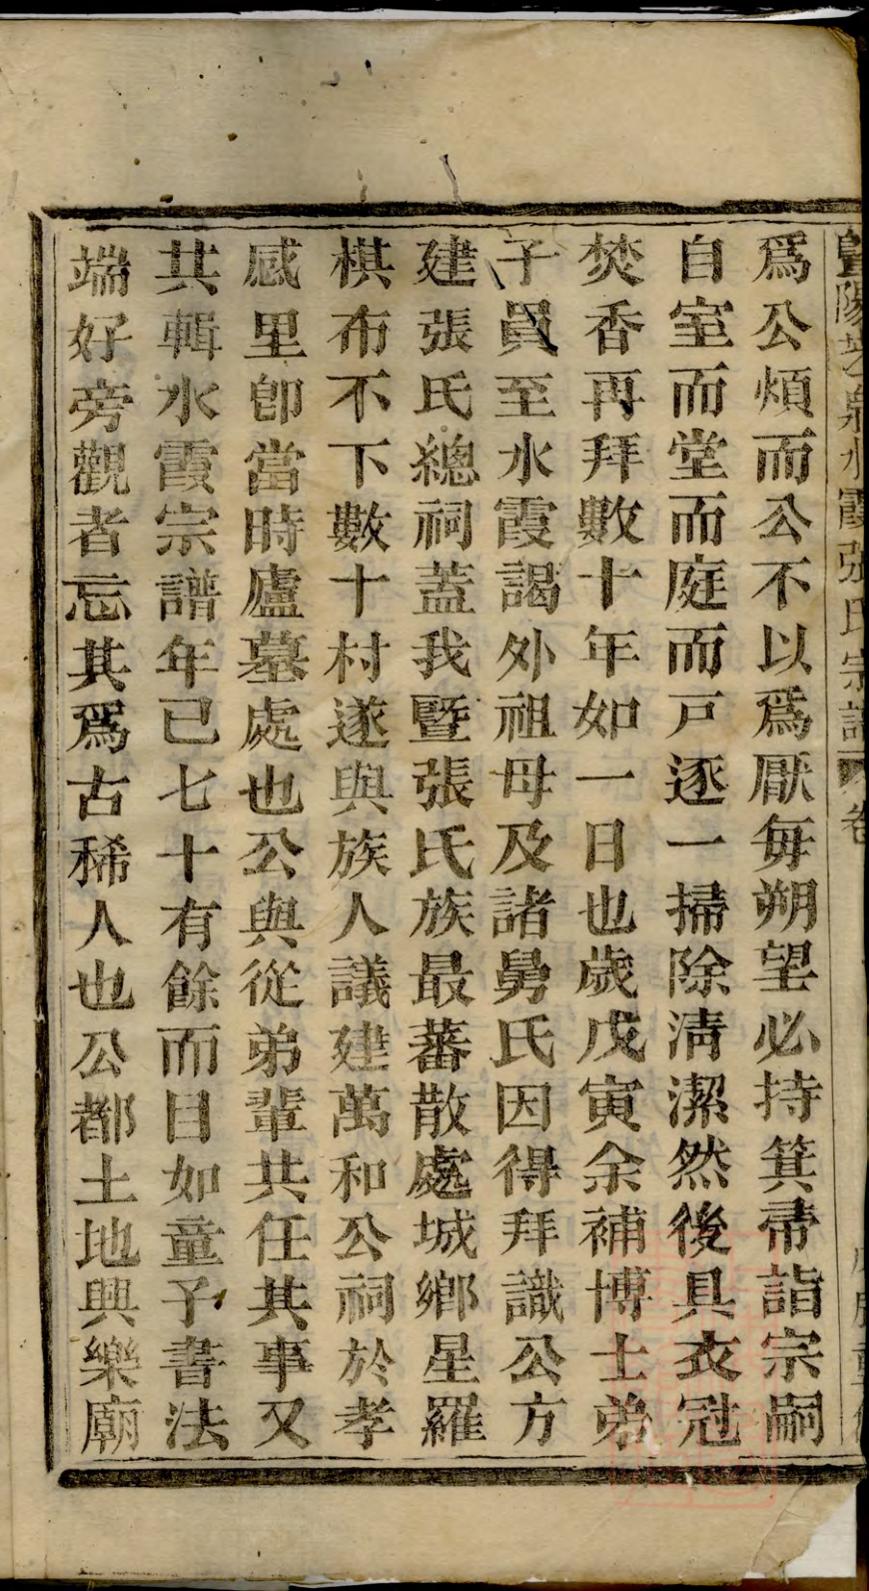 暨陽孝泉水霞張氏宗譜 卷
爲公煩而公不以爲厭每朔望必持箕帚詣宗嗣
自室而堂而庭而戸逐一掃除淸潔然後具衣冠
焚香再拜數十年如一日也歲戊寅余補博士弟
子員至水霞謁外祖母及諸舅氏因得拜識公方
建張氏總祠蓋我暨張氏族最蕃散處城鄉星羅
棋布不下數十村遂與族人議建萬和公祠於孝
感里卽當時廬墓處也公與從弟輩共任其事又
共輯水霞宗譜年已七十有餘而目如童子書法
端好旁觀者忘其爲古稀人也公都土地興樂廟